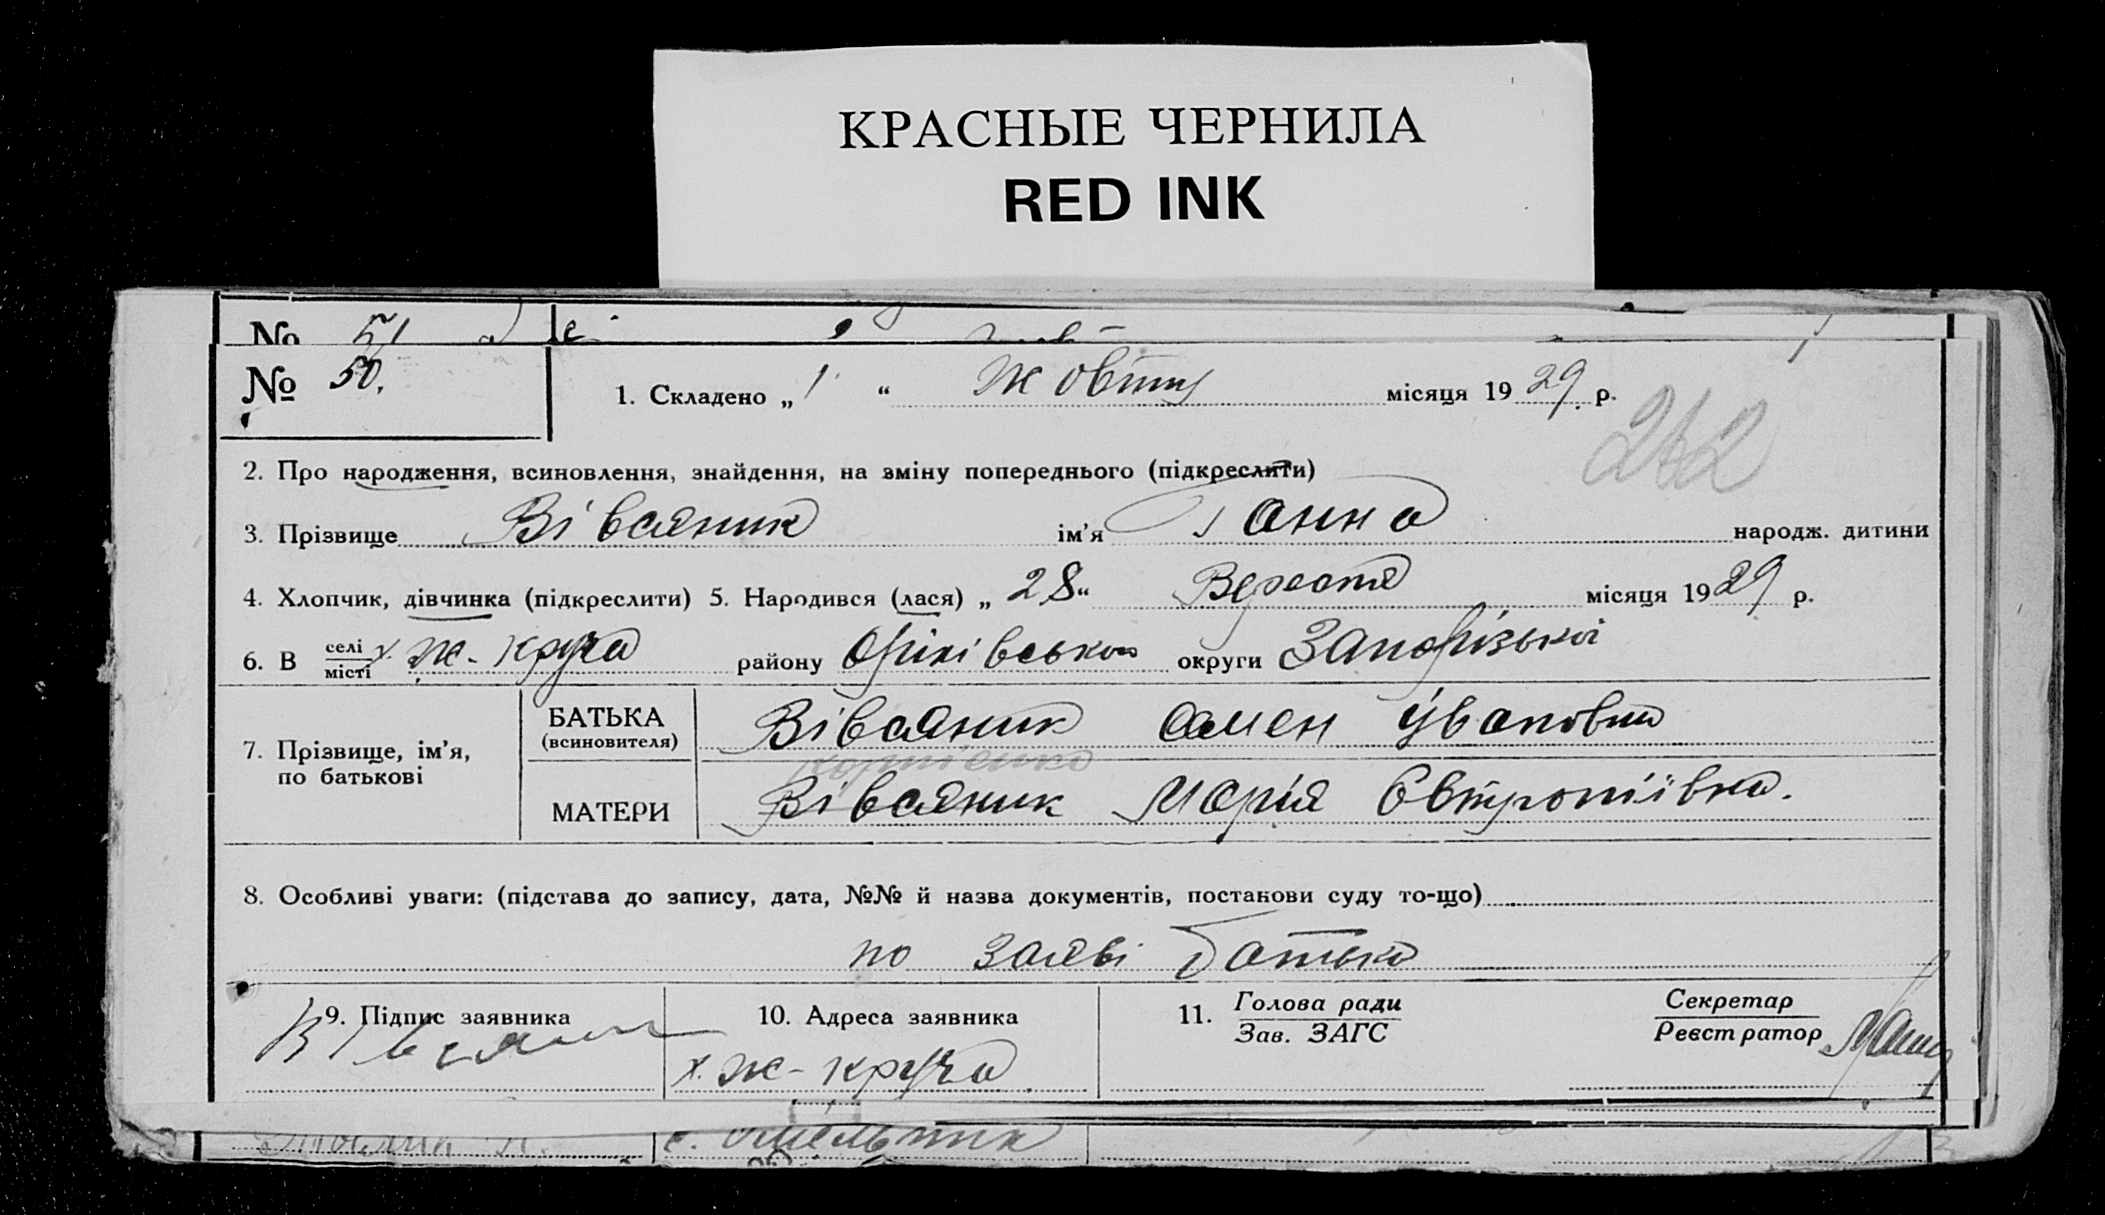 КРАСНЫЕ ЧЕРНИЛА
RED INK
№ 51
№ 50.
1. Складено „ 1 “ Жовтня місяця 1929 р.
242
2. Про народження, всиновлення, знайдення, на зміну попереднього (підкреслити)
3. Прізвище Вівсяник ім’я Ганна народж. дитини
4. Хлопчик, дівчинка (підкреслити) 5. Народився (лася) „ 28 “ Вересня місяця 1929 р.
6. В селі місті х. Ж-круча району Оріхівського округи Запорізької
7. Прізвище, ім’я, по батькові
БАТЬКА (всиновителя) Вівсяник Семен Іванович
Корнієнко
МАТЕРИ Вівсяник Марія Євтропіївна.
8. Особливі уваги: (підстава до запису, дата, №№ й назва документів, постанови суду то-що)
по заяві батька
9. Підпис заявника 10. Адреса заявника 11. Голова ради Зав. ЗАГС Секретар Реєстратор
Вівсяник х. Ж-круча
с. Омельник